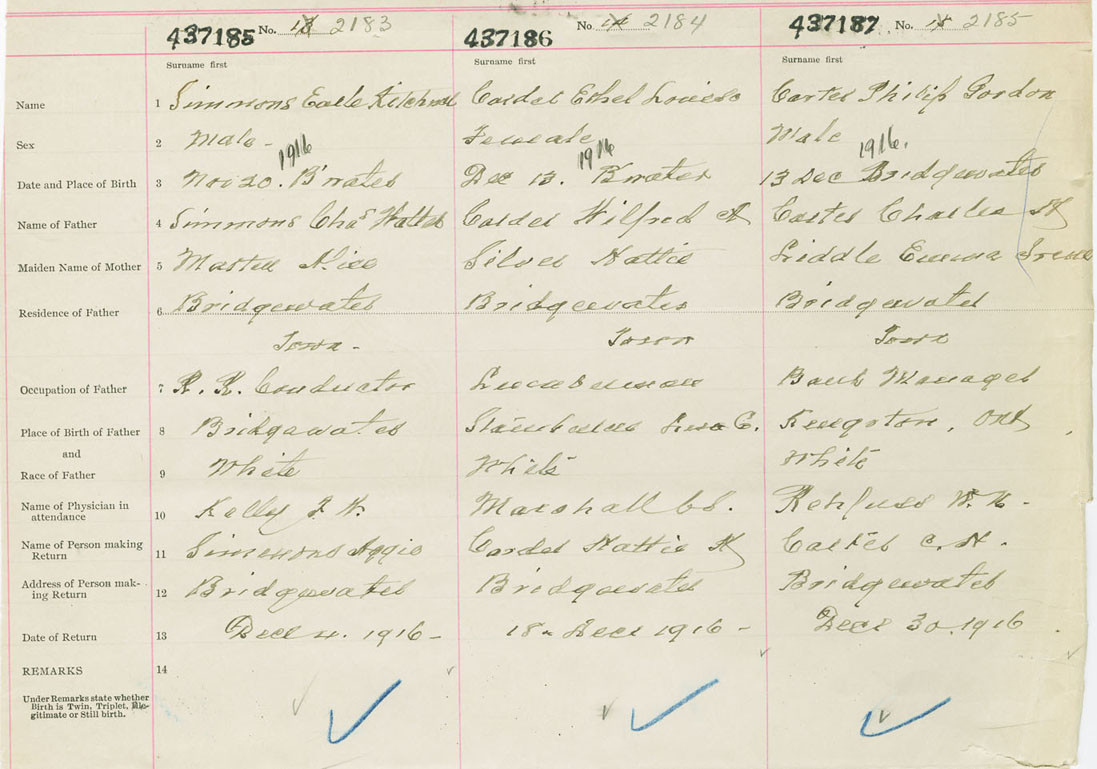 437185 No. 13 2183 437186 No. 14 2184 437187 No. 15 2185
Surname first Surname first Surname first
Name 1 Simmons Earle Kitchener Corder Ethel Louise Carter Philip Gordon
Sex 2 Male - Female Male
1916 1916 1916.
Date and Place of Birth 3 Nov 20. B'water Dec 13. B'water 13 Dec Bridgewater
Name of Father 4 Simmons Chas Walter Corder Wilfred A Carter Charles H
Maiden Name of Mother 5 Alice Silver Hattie Liddle Emma Irene
Residence of Father 6 Bridgewater Bridgewater Bridgewater
Town - Town Town
Occupation of Father 7 R. R. Conductor Lumberman Bank Manager
Place of Birth of Father 8 Bridgewater Co. Kingston, Ont
and
Race of Father 9 White White White
Name of Physician in
attendance 10 Kelly F. W. Marshall C S. Rehfuss W. N.
Name of Person making
Return 11 Simmons Aggie Corder Hattie Carter C. H.
Address of Person mak-
ing Return 12 Bridgewater Bridgewater Bridgewater
Date of Return 13 Dec 4. 1916 - 18 Dec 1916 - Dec 30. 1916
REMARKS 14
Under Remarks state whether
Birth is Twin, Triplet, Ille-
gitimate or Still birth.